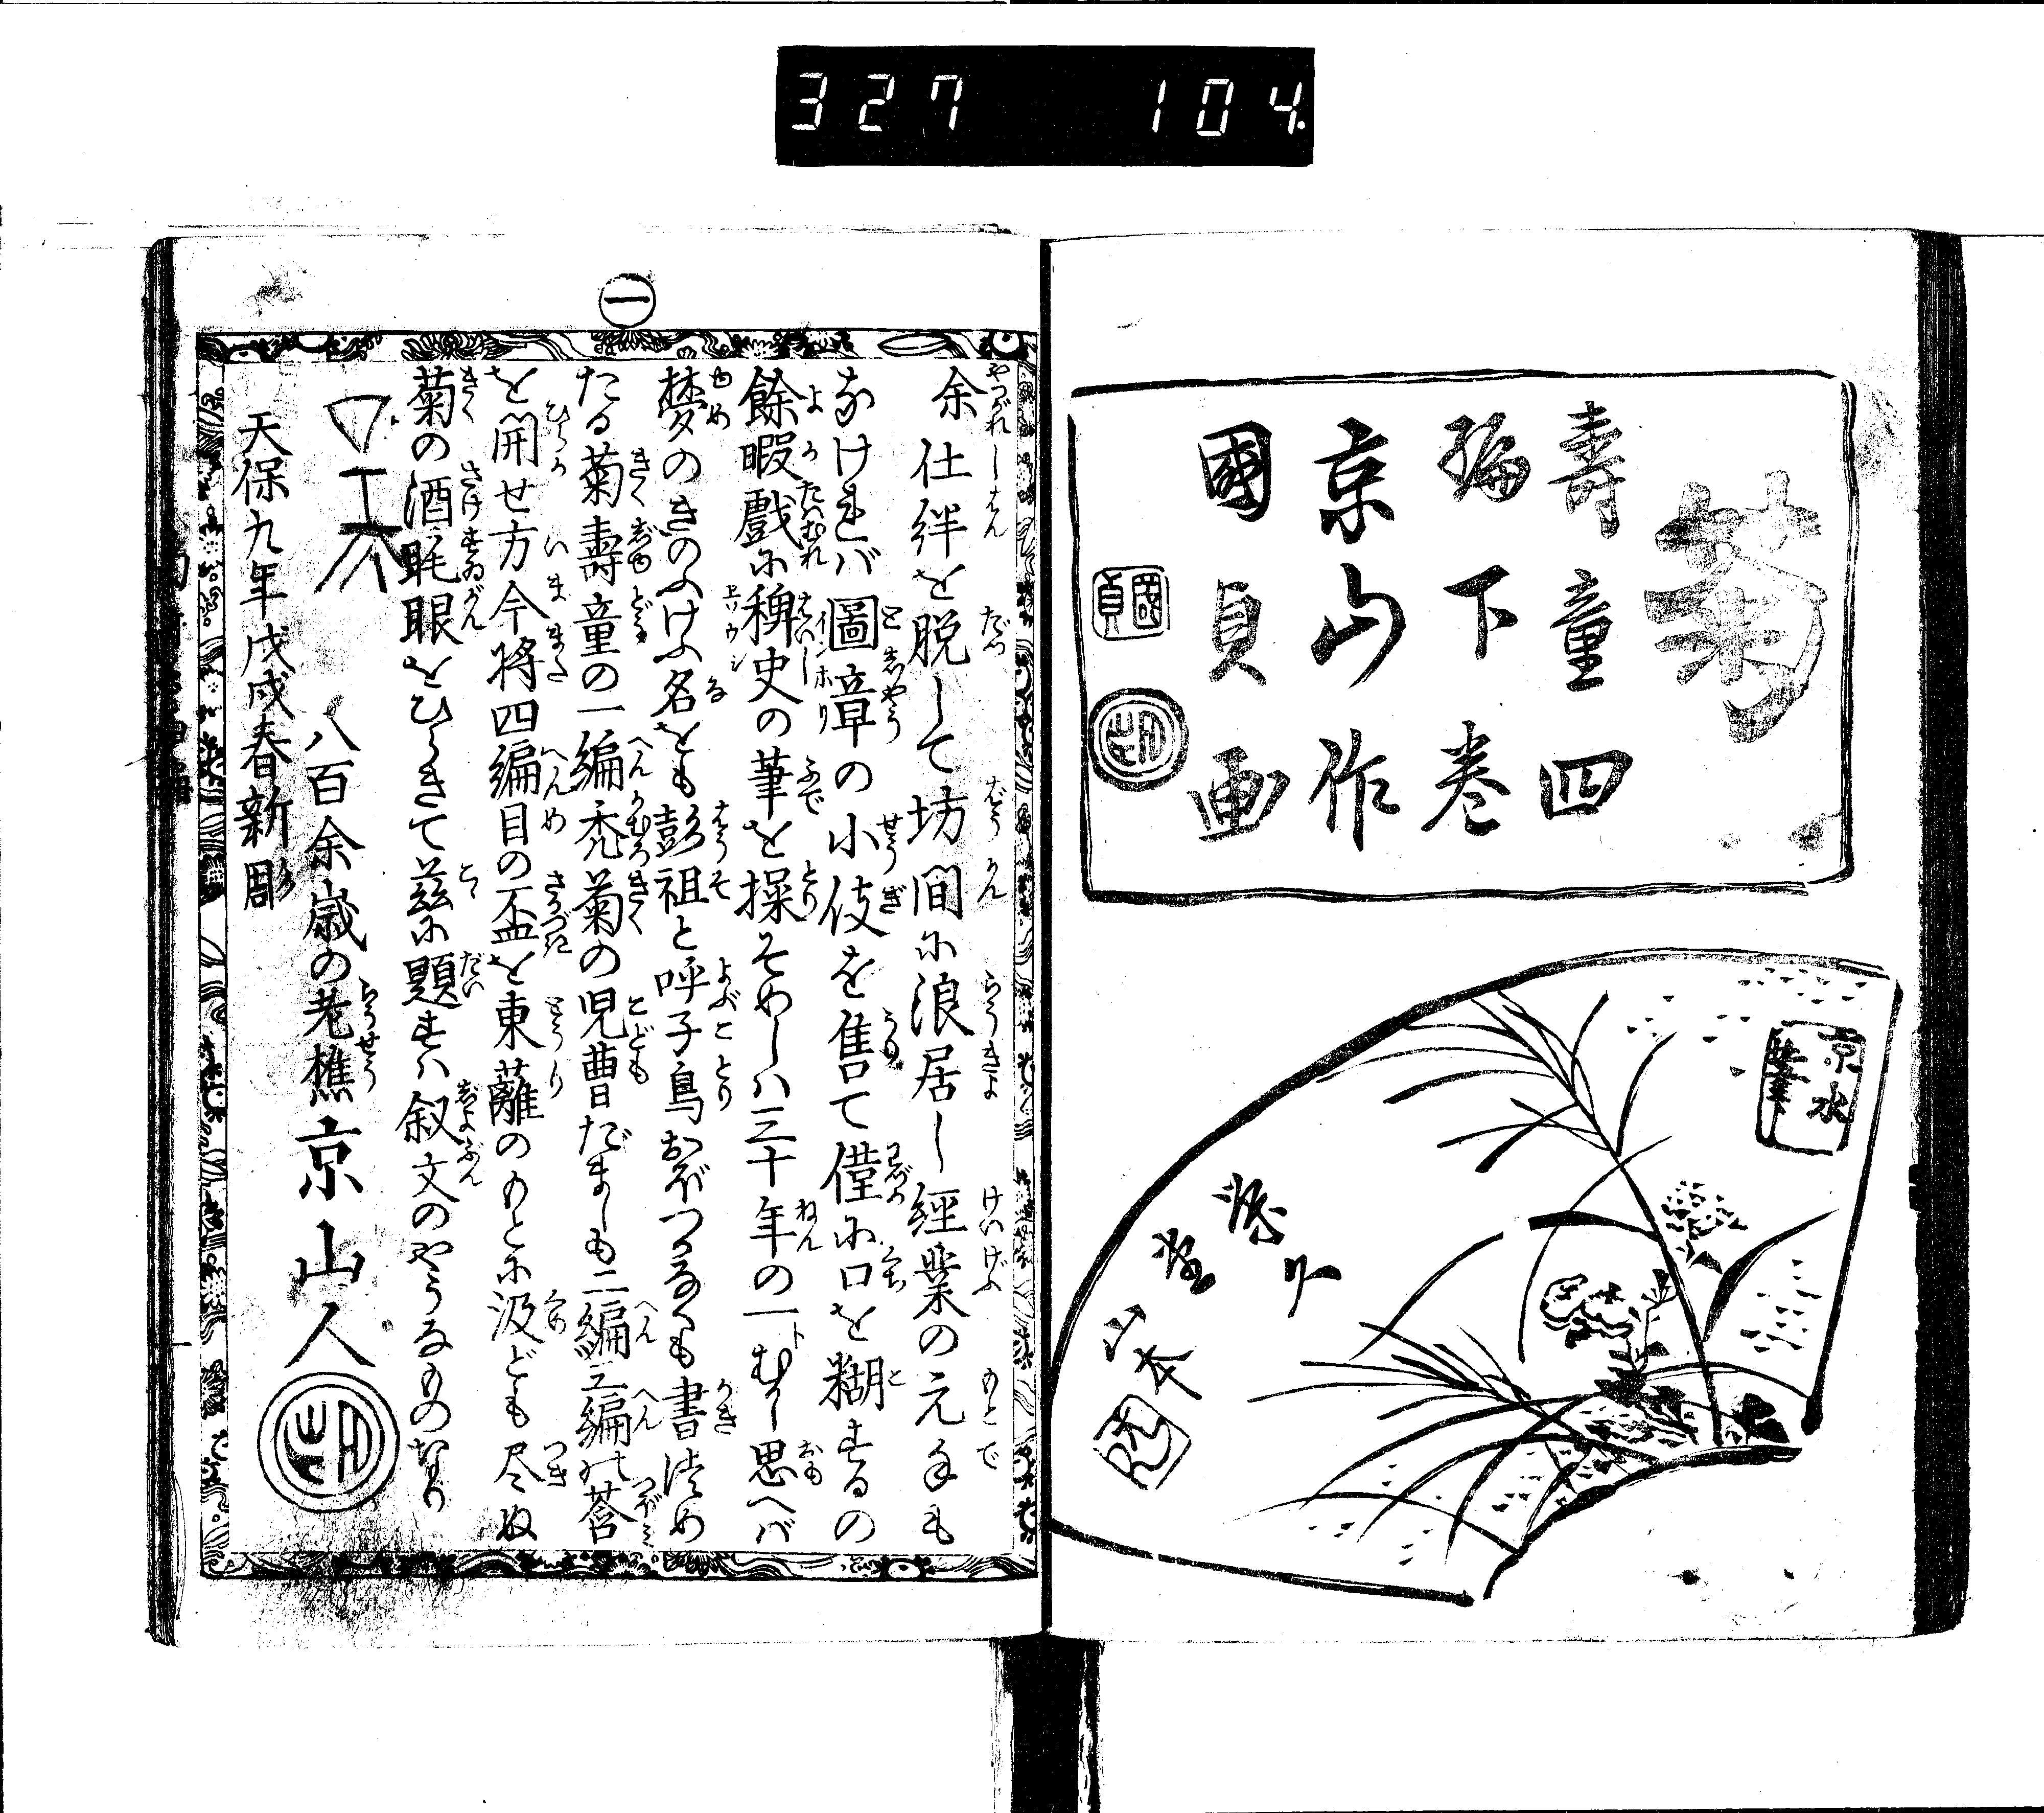 327 104.
菊
壽童四
編下巻
京山作
國貞画
國貞
京水
筆
山本
一
余仕絆を脱して坊間に浪居し經業の元手も
なければ圖章の小伎を售て僅に口を糊するの
餘暇戯に稗史の筆を操そめしハ三十年の一むかし思へバ
夢のきのふけふ名をも彭祖と呼子鳥おぼつかなくも書集め
たる菊壽童の一編禿菊の児曹だましも二編三編の莟
を開せ方今将四編目の盃を東籬のもとに汲ども尽ぬ
菊の酒酔眼をひらきて茲に題すハ叙文のやうなものなり
八百余歳の老樵京山人
天保九年戊戌春新彫